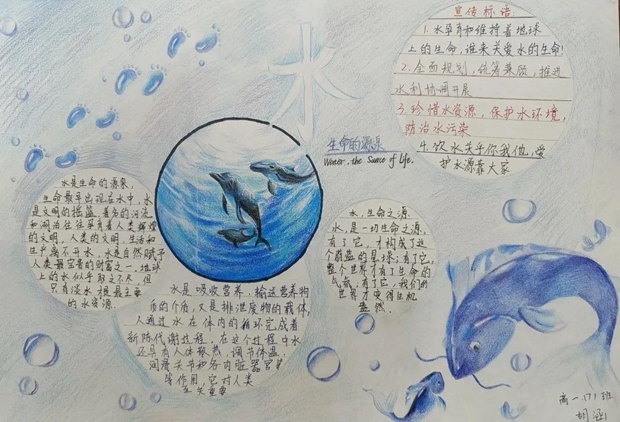 宣传标语
1. 水孕育和维持着地球
上的生命，谁来关爱水的生命！
2. 全面规划，统筹兼顾，推进
水利协调开展
3. 珍惜水资源，保护水环境，
防治水污染
4. 饮水关乎你我他，爱
护水源靠大家
水
生命的源泉
Water. the Source of Life.
水是生命的源泉。
生命最早出现在水中，水
是文明的摇篮，著名的河流
和湖泊往往孕育着人类辉煌
的文明，人类的文明、生活和
生产离不开水，水是自然赋予
人类最宝贵的财富之一，地球
上的水似乎取之不尽，但
只有淡水才是最主要
的水资源
水，生命之源
水，是一切生命之源，
有了它，才构成了这
个蔚蓝的星球；有了它，
整个世界才有了生命的
气息；有了它，我们的
世界才变得生机
盎然。
水是吸收营养、输送营养物
质的介质，又是排泄废物的载体，
人通过水在体内的循环完成着
新陈代谢过程，在这个过程中水
还具有人体散热、调节体温、
润滑关节和各内脏器官
等作用，它对人类
至关重要
高一.171班
胡涵